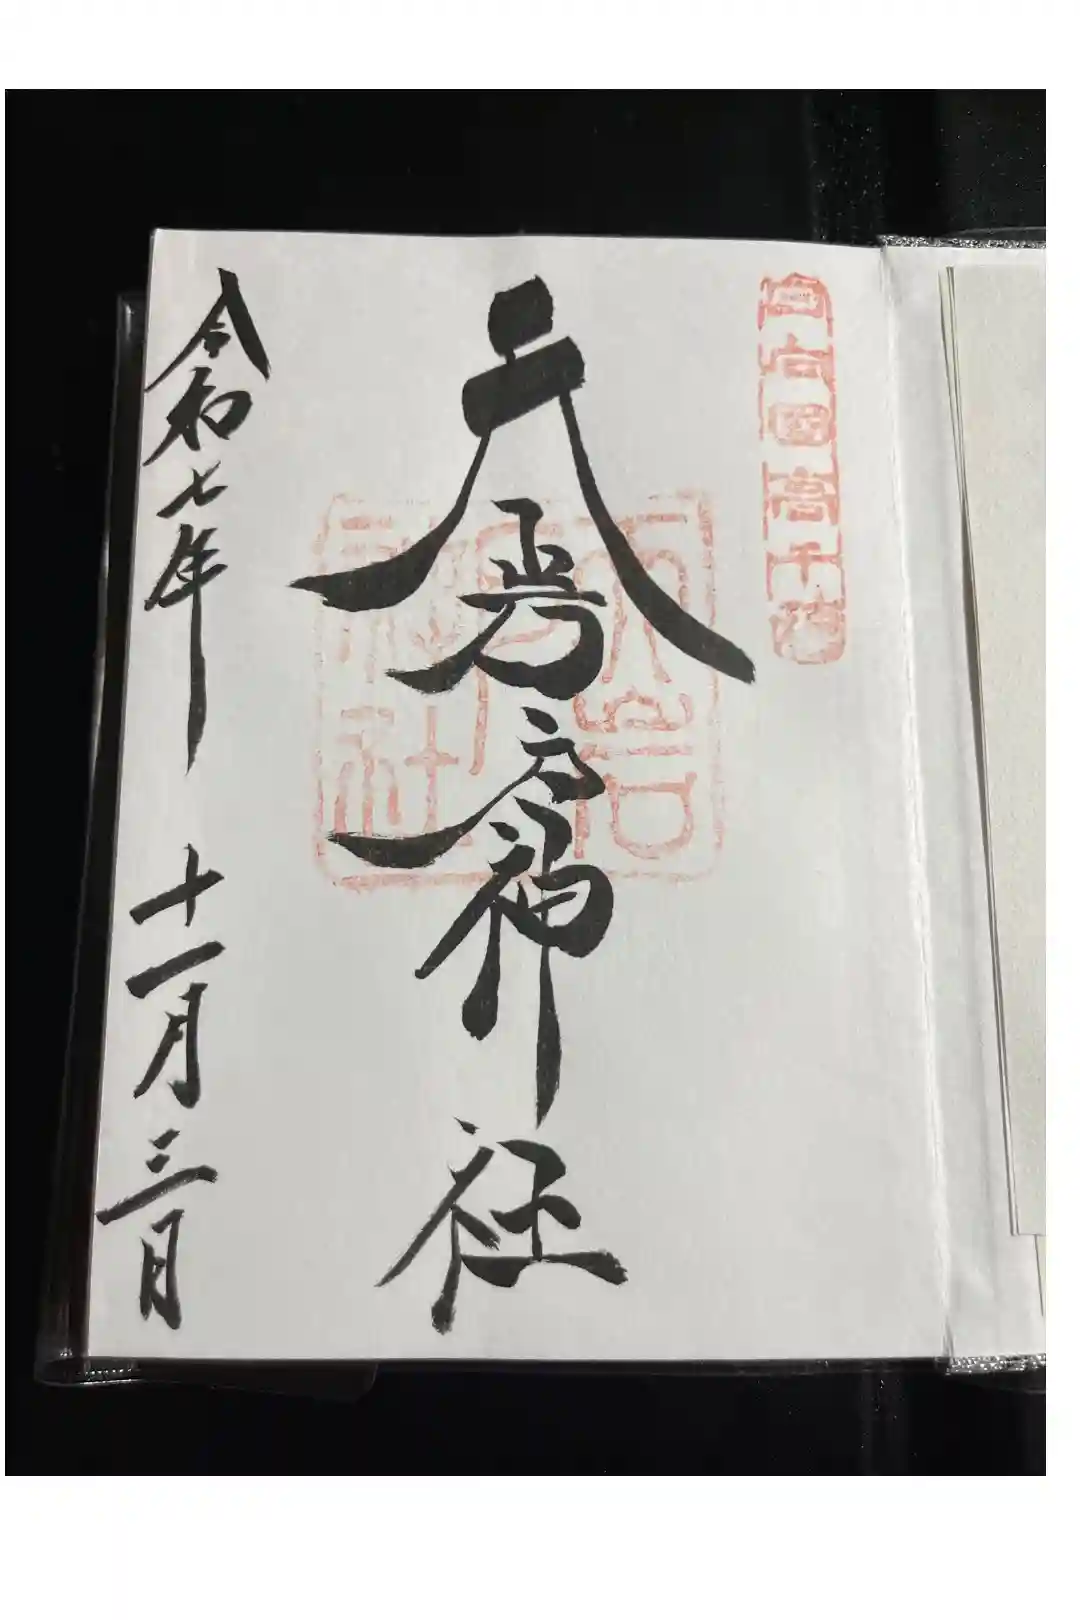 日向國高千穂
天岩戸神社
天岩戸神社
令和七年十一月三日